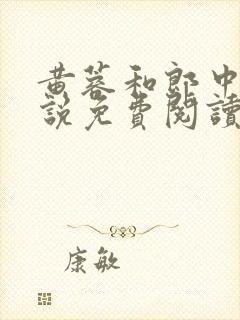 黄蓉和郎中
説免費閱讀
康敏